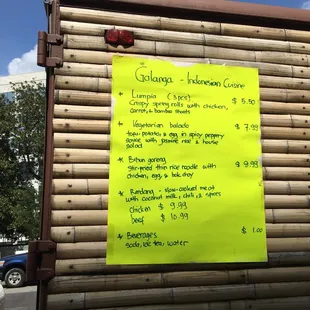 Galanga - Indonesian Cuisine
* Lumpia (3 pcs)
Crispy spring rolls with chicken, $ 5.50
carrot, & bamboo shoots
* Vegetarian balado $ 7.99
tofu, potato, & egg in spicy, peppery
sauce with jasmine rice & house
salad
* Bihun goreng $ 9.99
stir-fried thin rice noodle with
chicken, egg, & bok choy
* Rendang - slow-cooked meat
with coconut milk, chili, & spices
chicken $ 9.99
beef $ 10.99
* Beverages $ 1.00
soda, ice tea, water